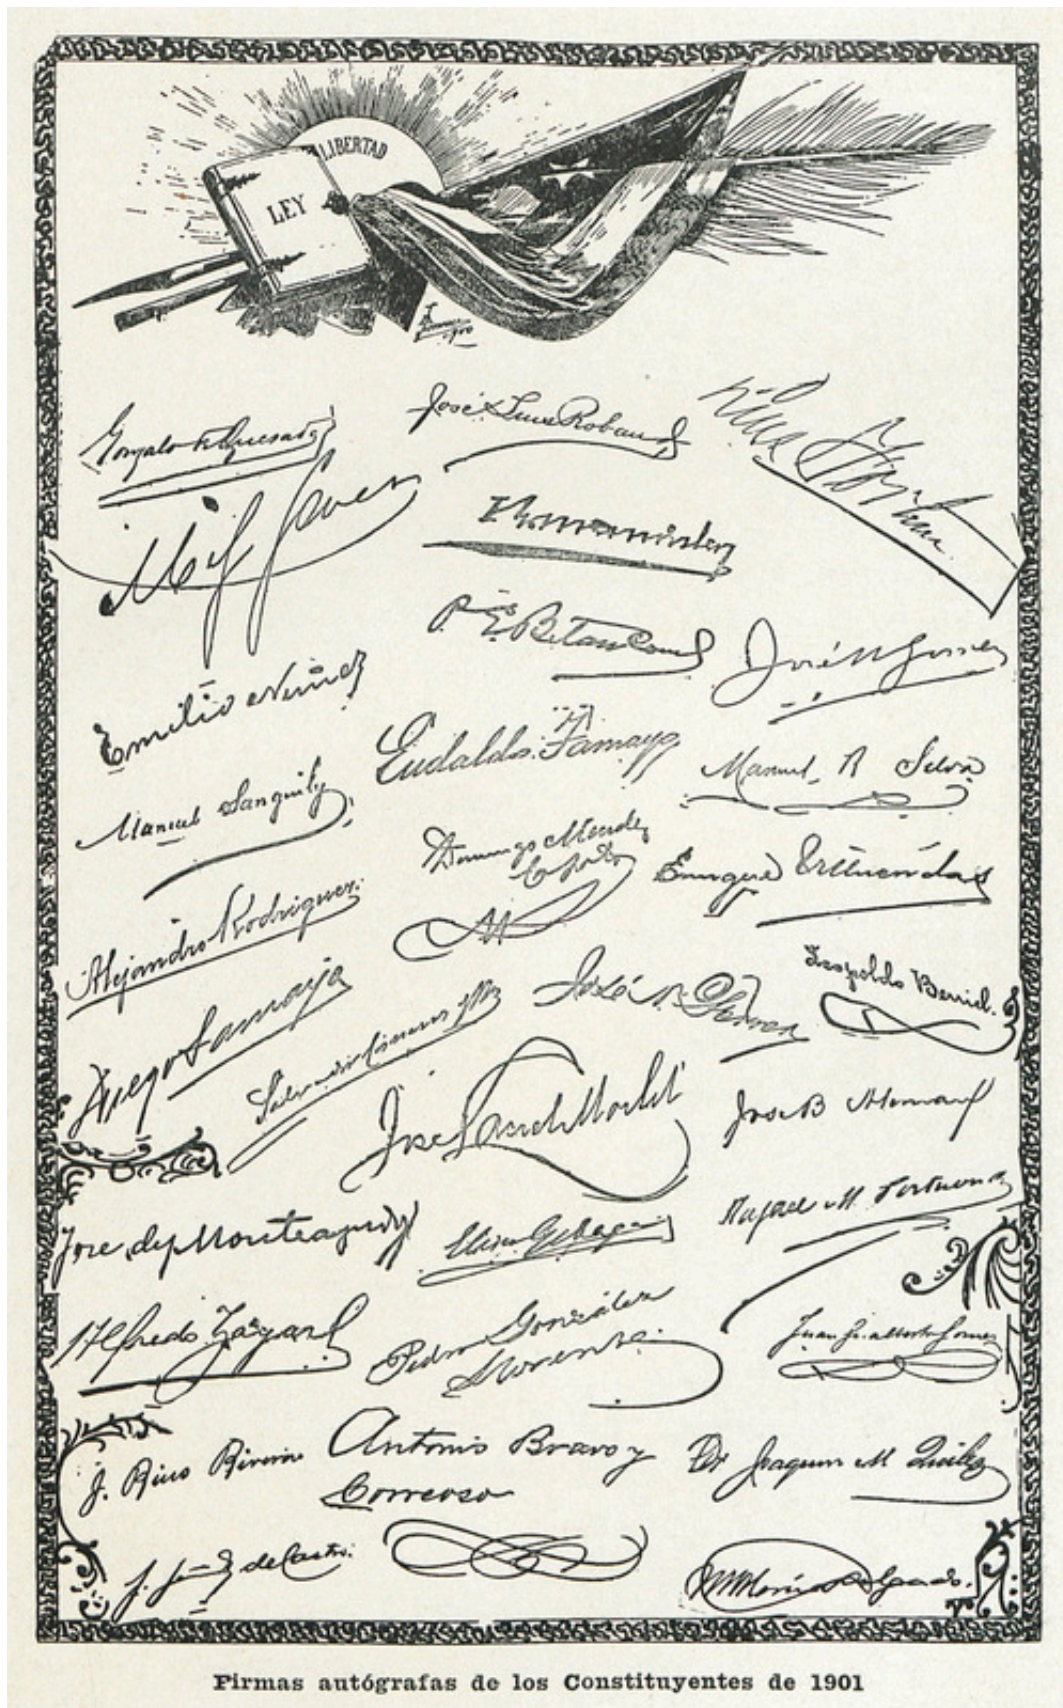 LIBERTAD
LEY
1900
Gonzalo de Quesada
José Luis Robau
Emilio Nuñez
P. E. Betancourt
José M Gomez
Eudaldo Tamayo
Manuel R Silva
Manuel Sanguily
Domingo Mendez
Capote
Enrique Villuendas
Alejandro Rodriguez
Leopoldo Berriel
Diego Tamayo
José N. Ferrer
José B Aleman
José de J Monteagudo
Eliseo Giberga
Rafael M. Portuondo
Alfredo Zayas
Pedro González
Llorente
Juan Gualberto Gomez
J. Rius Rivera
Antonio Bravo y
Correoso
Dr Joaquin M Quilez
J. Fdez de Castro
Firmas autógrafas de los Constituyentes de 1901